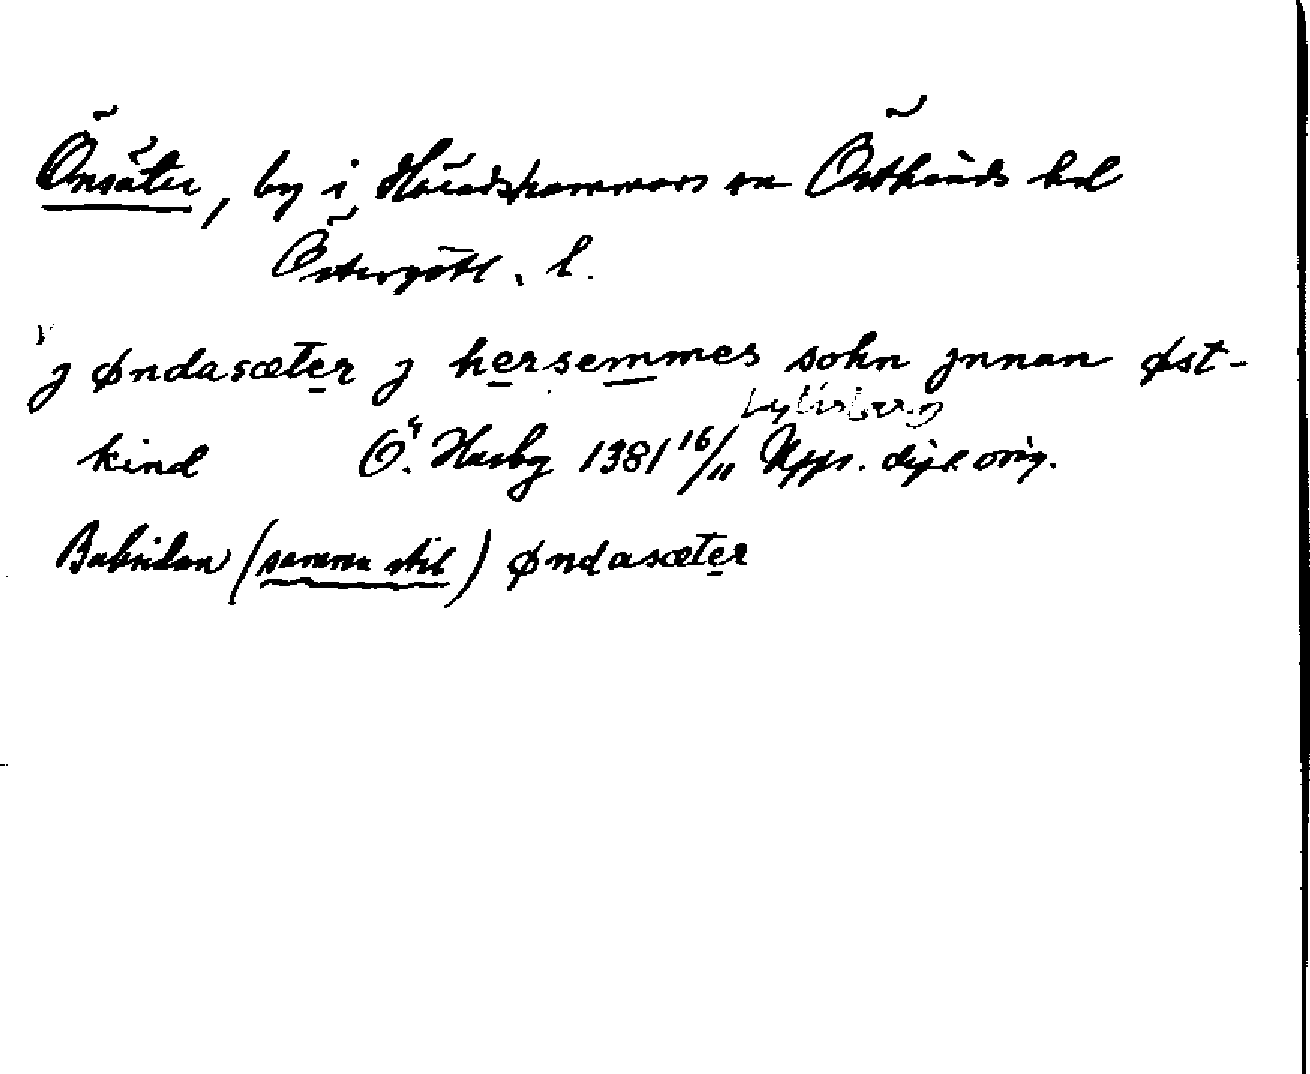 Önsäter, by i Häradshammars sn Östkinds hd
Östergötl. l.
j øndasæter j hersemmes sokn jnnan øst-
kind Ö. Husby 1381 16/11 Upps. dipl. orig.
Baksidan (samma stil) øndasæter